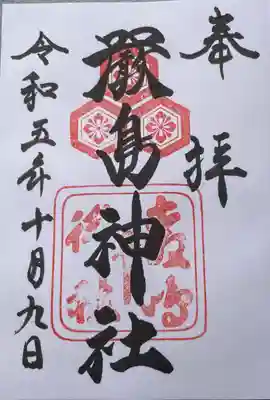 奉拝
厳島神社
令和五年十月九日